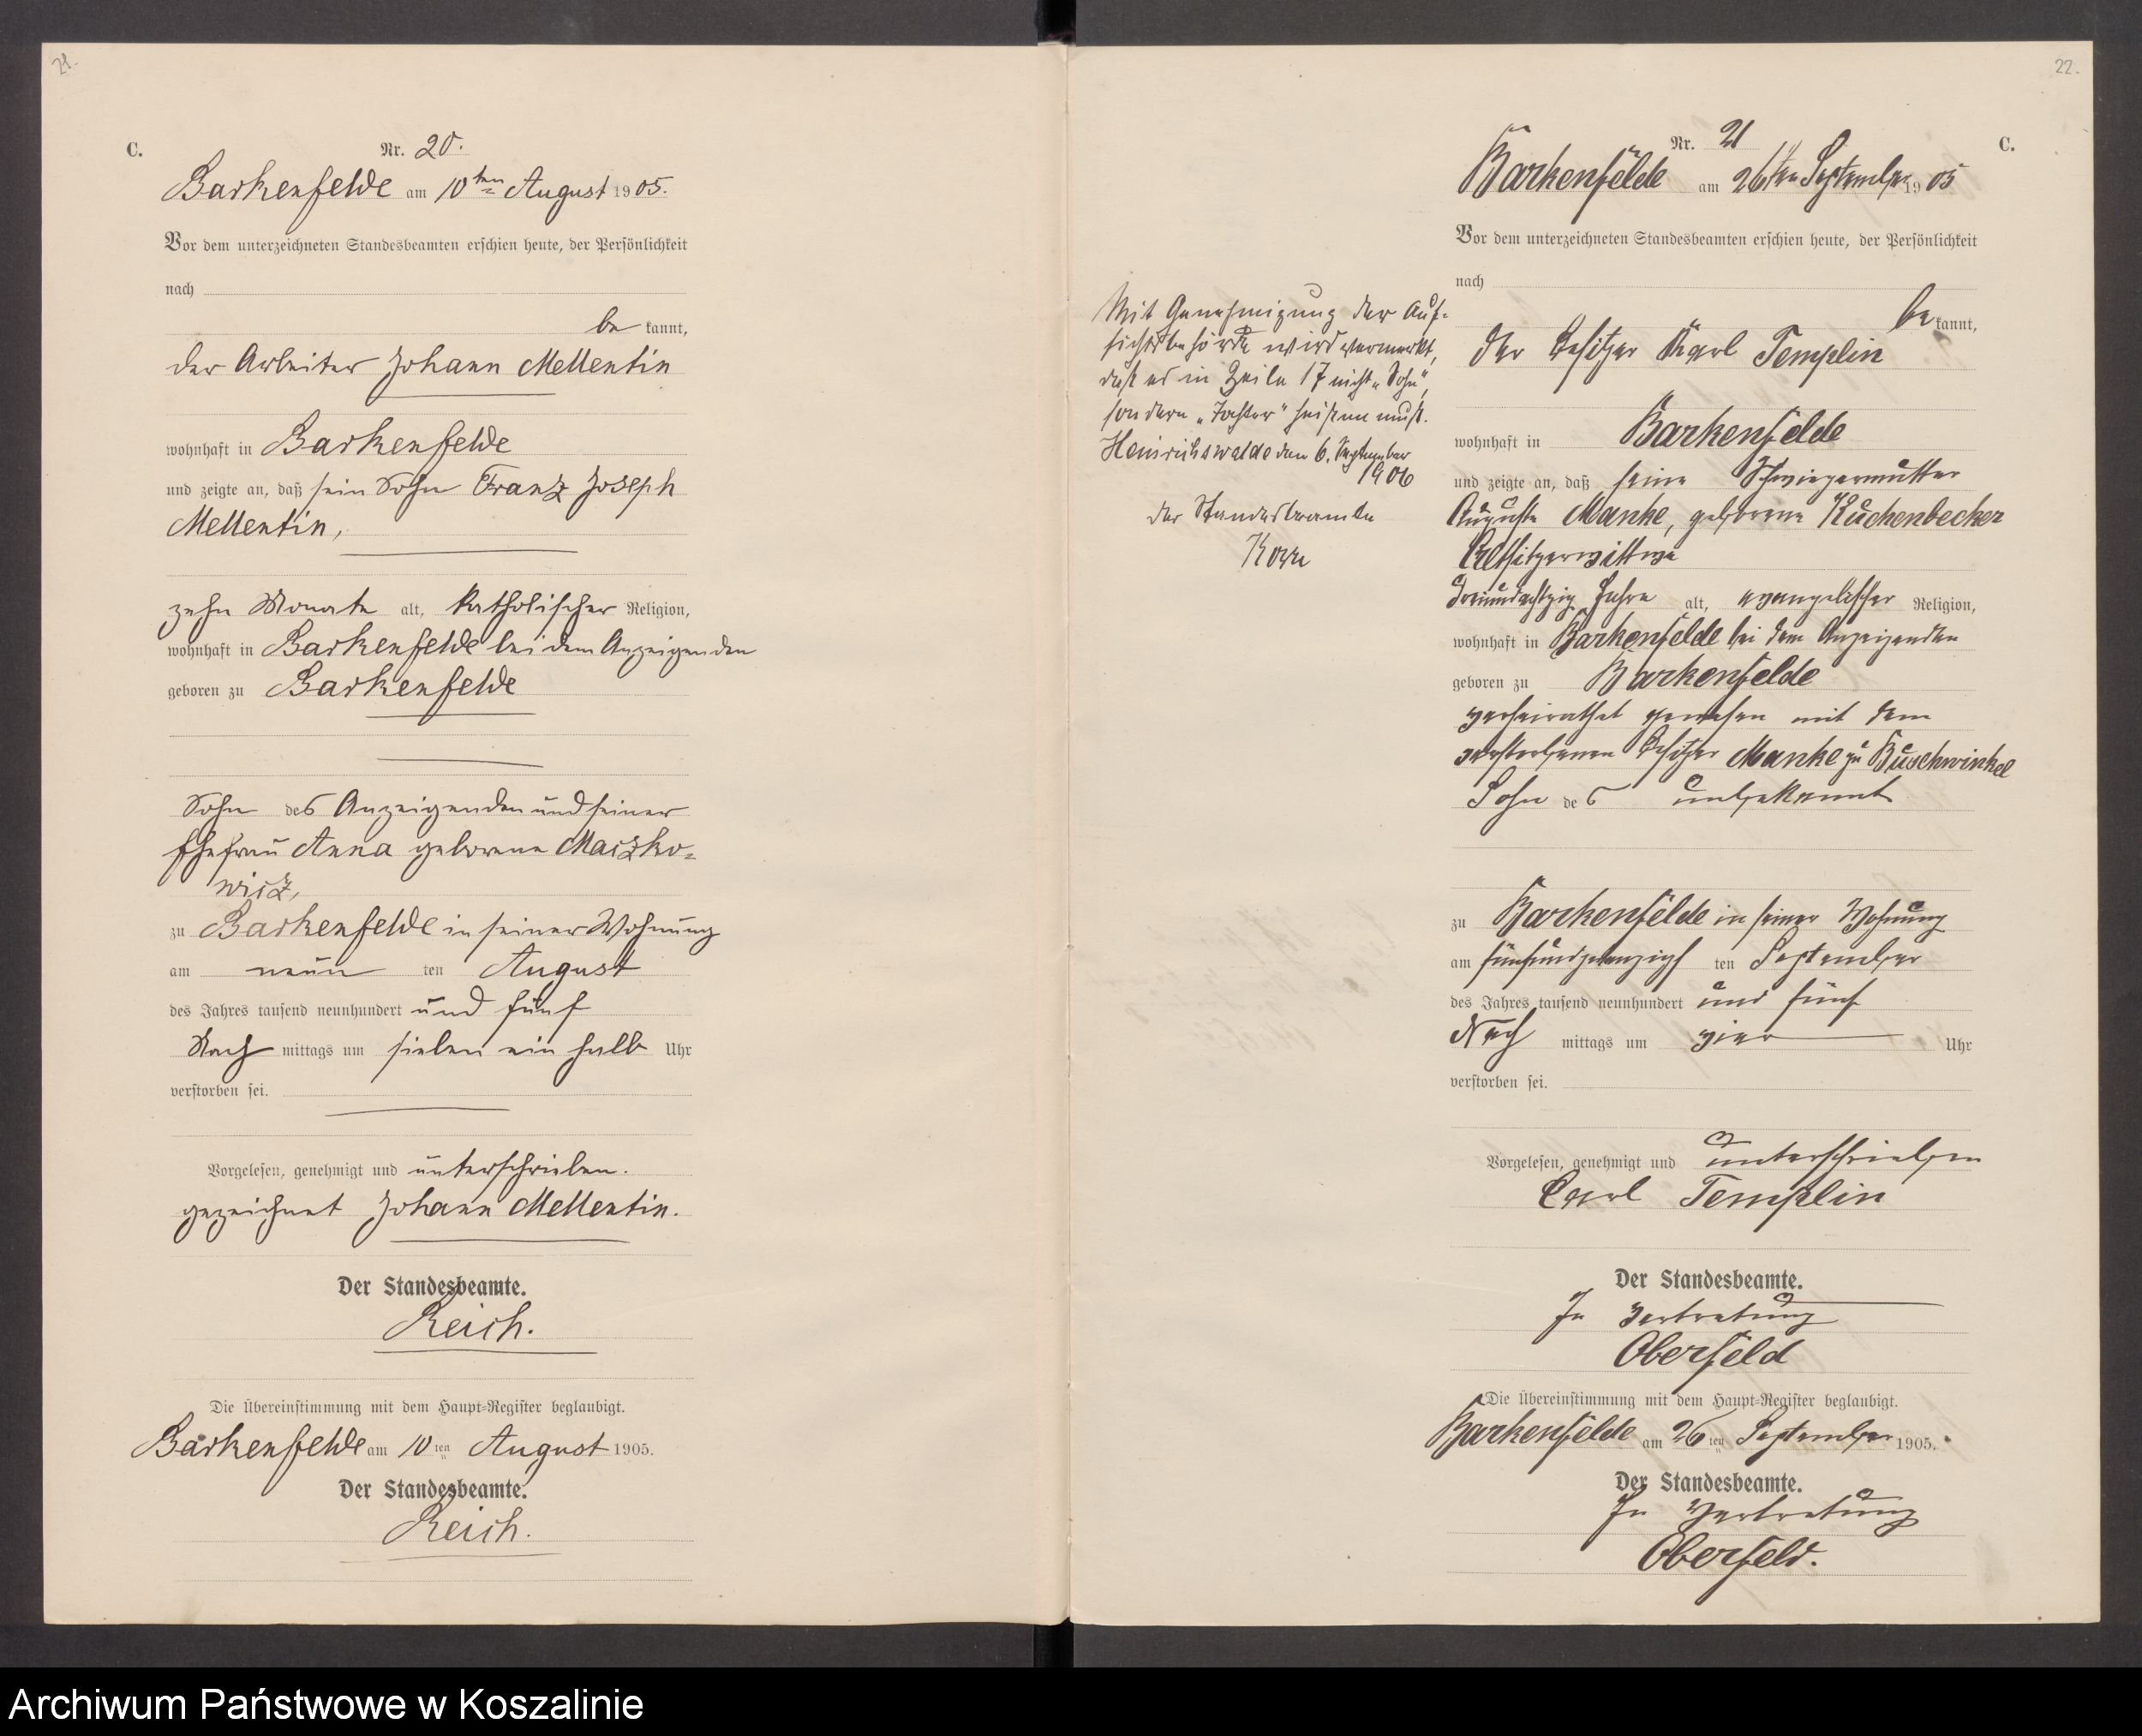 21.
C.
Nr. 20.
Barkenfelde am 10ten August 1905.
Vor dem unterzeichneten Standesbeamten erschien heute, der Persönlichkeit
nach
be kannt,
der Arbeiter Johann Mellentin
wohnhaft in Barkenfelde
und zeigte an, daß sein Sohn Franz Joseph
Mellentin,
zehn Monate alt, katholischer Religion,
wohnhaft in Barkenfelde bei dem Anzeigenden
geboren zu Barkenfelde
Sohn des Anzeigenden und seiner
Ehefrau Anna geborene Maczko-
wicz,
zu Barkenfelde in seiner Wohnung
am neun ten August
des Jahres tausend neunhundert und fünf
Nach mittags um sieben ein halb Uhr
verstorben sei.
Vorgelesen, genehmigt und unterschrieben.
gezeichnet Johann Mellentin.
Der Standesbeamte.
Reich.
Die Übereinstimmung mit dem Haupt-Register beglaubigt.
Barkenfelde am 10ten August 1905.
Der Standesbeamte.
Reich.
22.
C.
Nr. 21
Barkenfelde am 26ten September 1905
Vor dem unterzeichneten Standesbeamten erschien heute, der Persönlichkeit
nach
be kannt,
der Besitzer Karl Templin
wohnhaft in Barkenfelde
und zeigte an, daß seine Schwiegermutter
Auguste Manke, geborene Kuchenbecker
Altsitzerwittwe
dreiundachtzig Jahre alt, evangelischer Religion,
wohnhaft in Barkenfelde bei dem Anzeigenden
geboren zu Barkenfelde
verheirathet gewesen mit dem
verstorbenen Besitzer Manke zu Buschwinkel
Sohn des unbekannt
zu Barkenfelde in seiner Wohnung
am fünfundzwanzigsten September
des Jahres tausend neunhundert und fünf
Nach mittags um vier Uhr
verstorben sei.
Vorgelesen, genehmigt und unterschrieben
Carl Templin
Der Standesbeamte.
In Vertretung
Oberfeld
Die Übereinstimmung mit dem Haupt-Register beglaubigt.
Barkenfelde am 26ten September 1905.
Der Standesbeamte.
In Vertretung
Oberfeld.
Mit Genehmigung der Auf-
sichtsbehörde wird vermerkt,
daß es in Zeile 17 nicht „Sohn",
sondern „Tochter" heißen muß.
Heinrichswalde den 6. September
1906
Der Standesbeamte
Archiwum Państwowe w Koszalinie